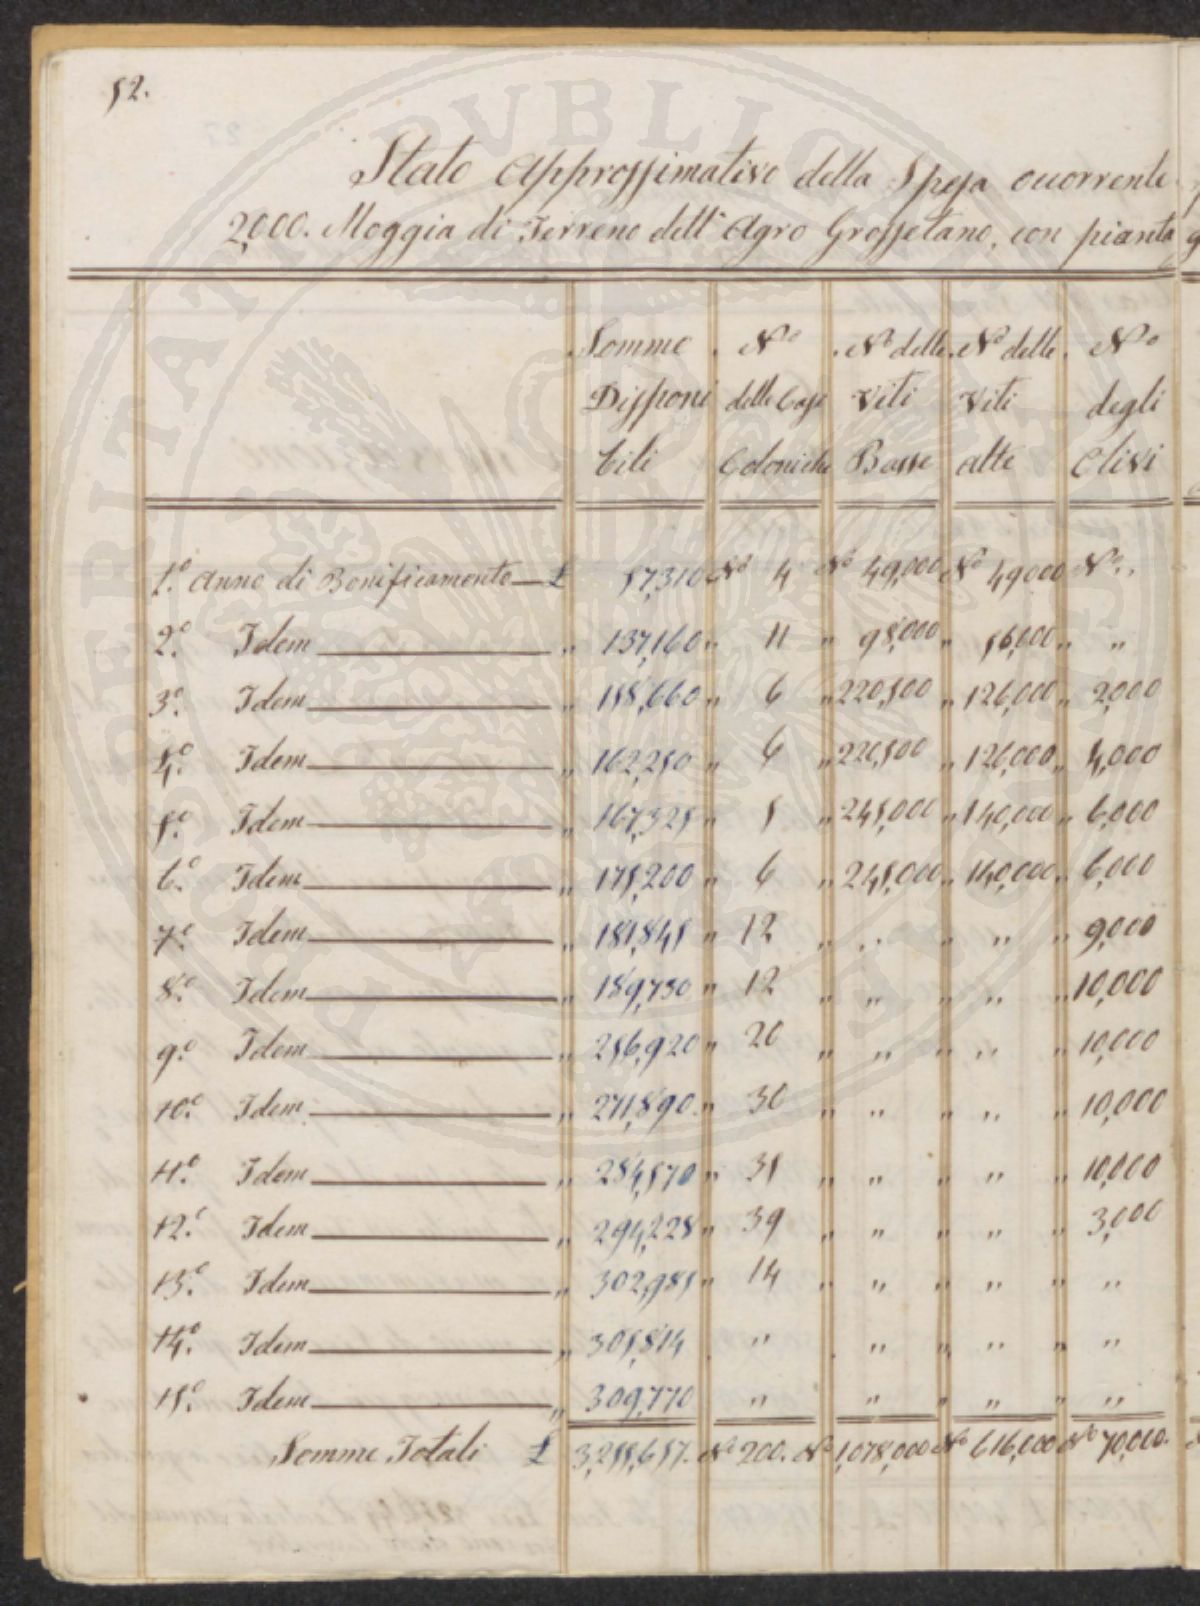 52.
Stato Approssimativo della Spesa occorrente
2,000. Moggia di Terreno dell' Agro Grossetano, con pianta
Somme Disponibili | N.º delle Case Coloniche | N.º delle Viti Basse | N.º delle Viti alte | N.º degli Olivi
1.º Anno di Bonificamento £ 57,310 Nº 4 Nº 49,000 Nº 49000 Nº „
2.º Idem „ 137,160 „ 11 „ 98,000 „ 56,000 „ „
3.º Idem „ 158,660 „ 6 „ 220,500 „ 126,000 „ 2,000
4.º Idem „ 162,250 „ 6 „ 220,500 „ 126,000 „ 4,000
5.º Idem „ 167,325 „ 5 „ 245,000 „ 140,000 „ 6,000
6.º Idem „ 175,200 „ 6 „ 245,000 „ 140,000 „ 6,000
7.º Idem „ 181,845 „ 12 „ „ „ „ „ 9,000
8.º Idem „ 189,730 „ 12 „ „ „ „ „ 10,000
9.º Idem „ 256,920 „ 20 „ „ „ „ „ 10,000
10.º Idem „ 271,890 „ 30 „ „ „ „ „ 10,000
11.º Idem „ 284,570 „ 35 „ „ „ „ „ 10,000
12.º Idem „ 294,228 „ 39 „ „ „ „ „ 3,000
13.º Idem „ 302,985 „ 14 „ „ „ „ „ „
14.º Idem „ 305,814 „ „ „ „ „ „
15.º Idem „ 309,770 „ „ „ „ „
Somme Totali £ 3,255,657. Nº 200. Nº 1,078,000 Nº 616,000 Nº 70,000.